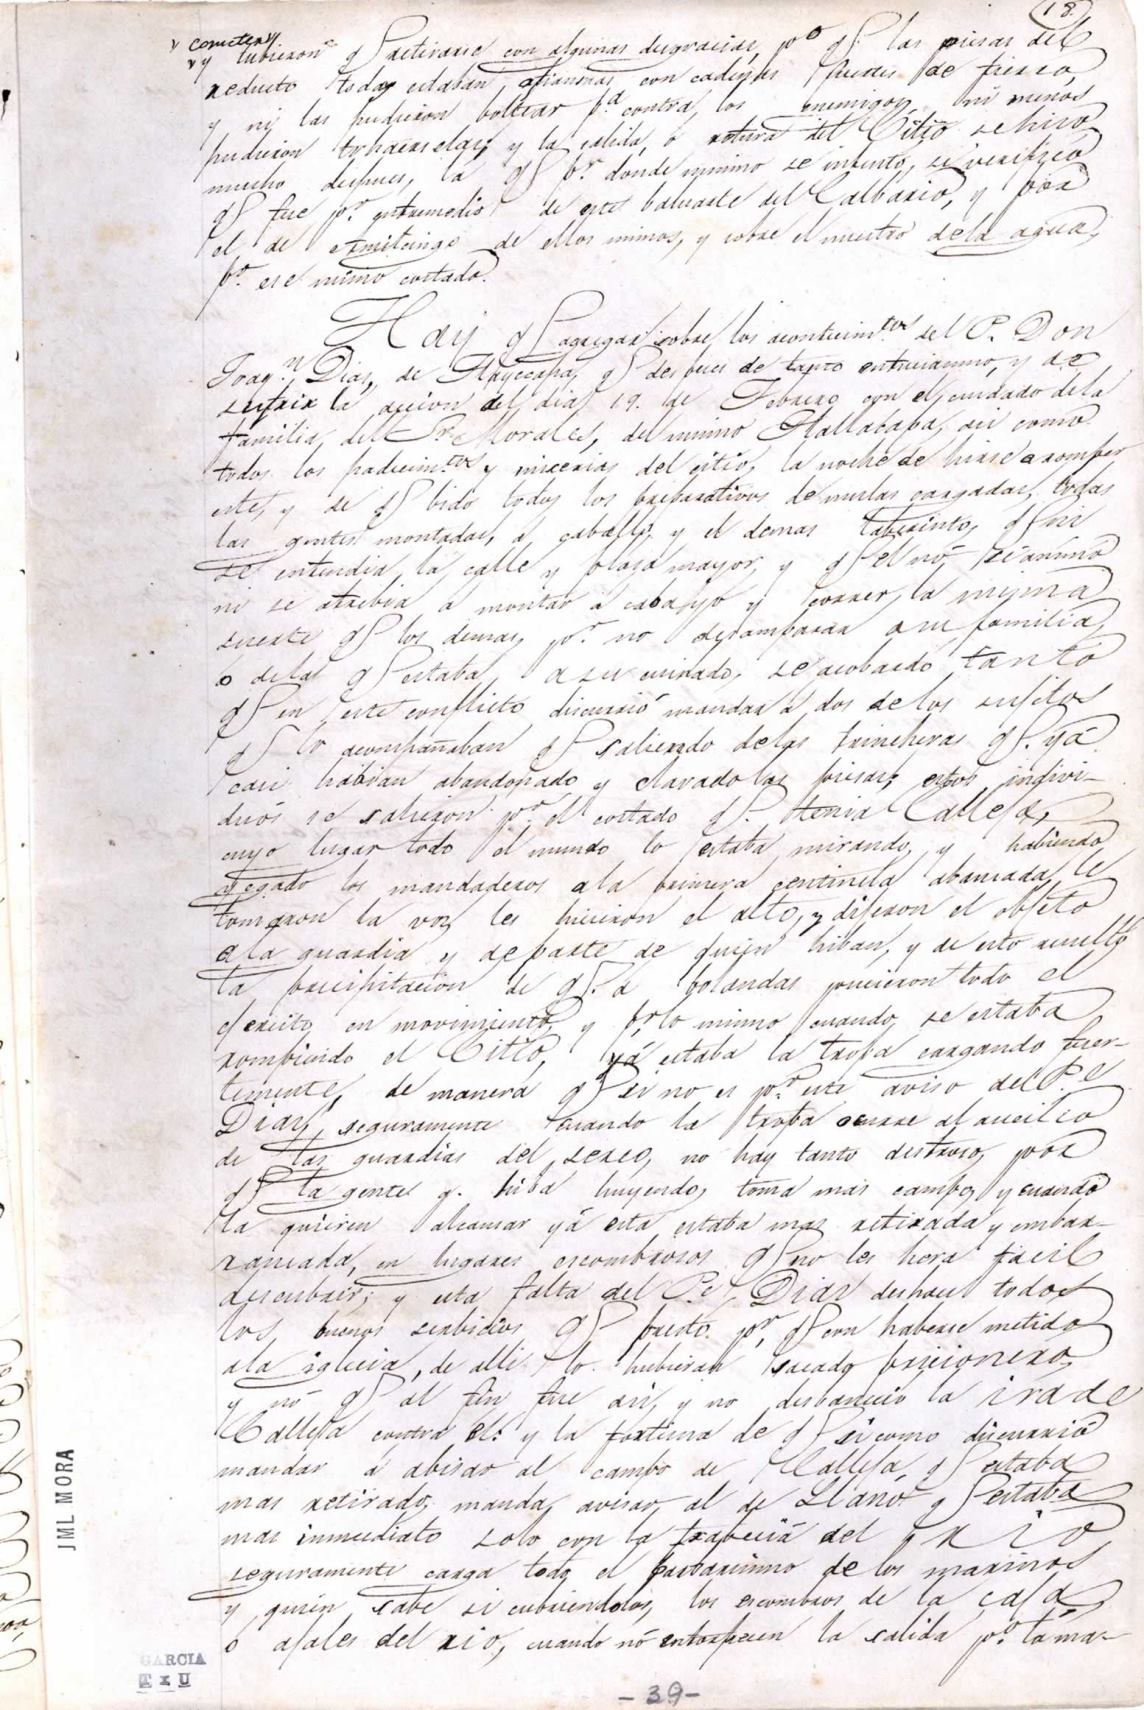 18.
y cometery
y tubieron q. retirarse con algunas desgracias, p.o q. las piesas del
reducto todas estaban afiansas con cadenas fuertes de fierro,
y ni las pudieron boltear p.a contra los enemigos, ni menos
pudieron trahérselas; y la salida, o rotura del Citio se hiso
mucho despues, la q. p.r donde mismo se intento, se verifico
q. fue p.r entremedio de este baluarte del Calbario, y por
el de de ellos mimos, y sobre el nuestro dela agua,
p.r ese mimo costado.
Hay q. agregar sobre los acontecim.tos del P. Don
Joaq.n Dias, de q. despues de tanto entuciasmo, y de
sufrir la accion del dia 19. de Febrero con el cuidado dela
familia, del Sr. Morales, del mimo asi como
todos los padecim.tos y miserias del citio, la noche de hirse a romper
este, y de q. bido todos los preparativos de mulas cargadas, todas
las gentes montadas, a caballo, y el demas laberinto, q. ni
se entendia, la calle y plasa mayor, y q. el no se animo
ni se atrebia a montar a cabayo y correr, la myma
suerte q. los demas, p.r no desamparar a su familia,
o dela q. estaba a su cuidado, se acobardo tanto
q. en este conflicto, discurrió mandar a dos de los sujetos
q. lo acompañaban q. saliendo de las trincheras q. ya
casi habian abandonado y clavado las piesas; estos indivi-
duos se salieron p.r el costado q. tenia Calleja,
cuyo lugar todo el mundo lo estaba mirando, y habiendo
yegado los mandaderos ala primera centinela abansada, le
tomaron la voz, les hicieron el alto, y dijeron el objeto
ala guardia y de parte de quien hiban, y de esto resultó
la precipitacion de q. a bolandas pucieron todo el
ejercito en movimiento, y p.r lo mimo cuando se estaba
rompiendo el Citio, yá estaba la tropa cargando fuer-
temente, de manera q. si no es p.r este aviso del P.e
Dias, seguramente cuando la tropa ocurre al aucilio
de las guardias del serco, no hay tanto destroso, por
q. la gente q. hiba huyendo, toma mas campo, y cuando
la quieren alcansar yá esta estaba mas retirada y embar-
rancada, en lugares escombrosos q. no les hera facil
descubrir; y esta falta del P.e Dias deshase todos
los, buenos serbicios q. presto. p.r q. con haberse metido
ala iglecia, de alli lo hubieran sacado pricionero,
y no q. al fin fue asi, y no desbanecio la ira de
Calleja contra él: y la fortuna de q. si como discurrió
mandar a abisar al campo de Calleja, q. estaba
mas retirado, manda, avisar, al de Llano q. estaba
mas inmediato solo con la trabecia del rio
seguramente carga todo el barbarismo de los marinos
y quien sabe si cubriendolos, los escombros de la caja,
o ajales del rio, cuando no entorpecen la salida p.r toma-
JML MORA
GARCIA
TxU
-39-